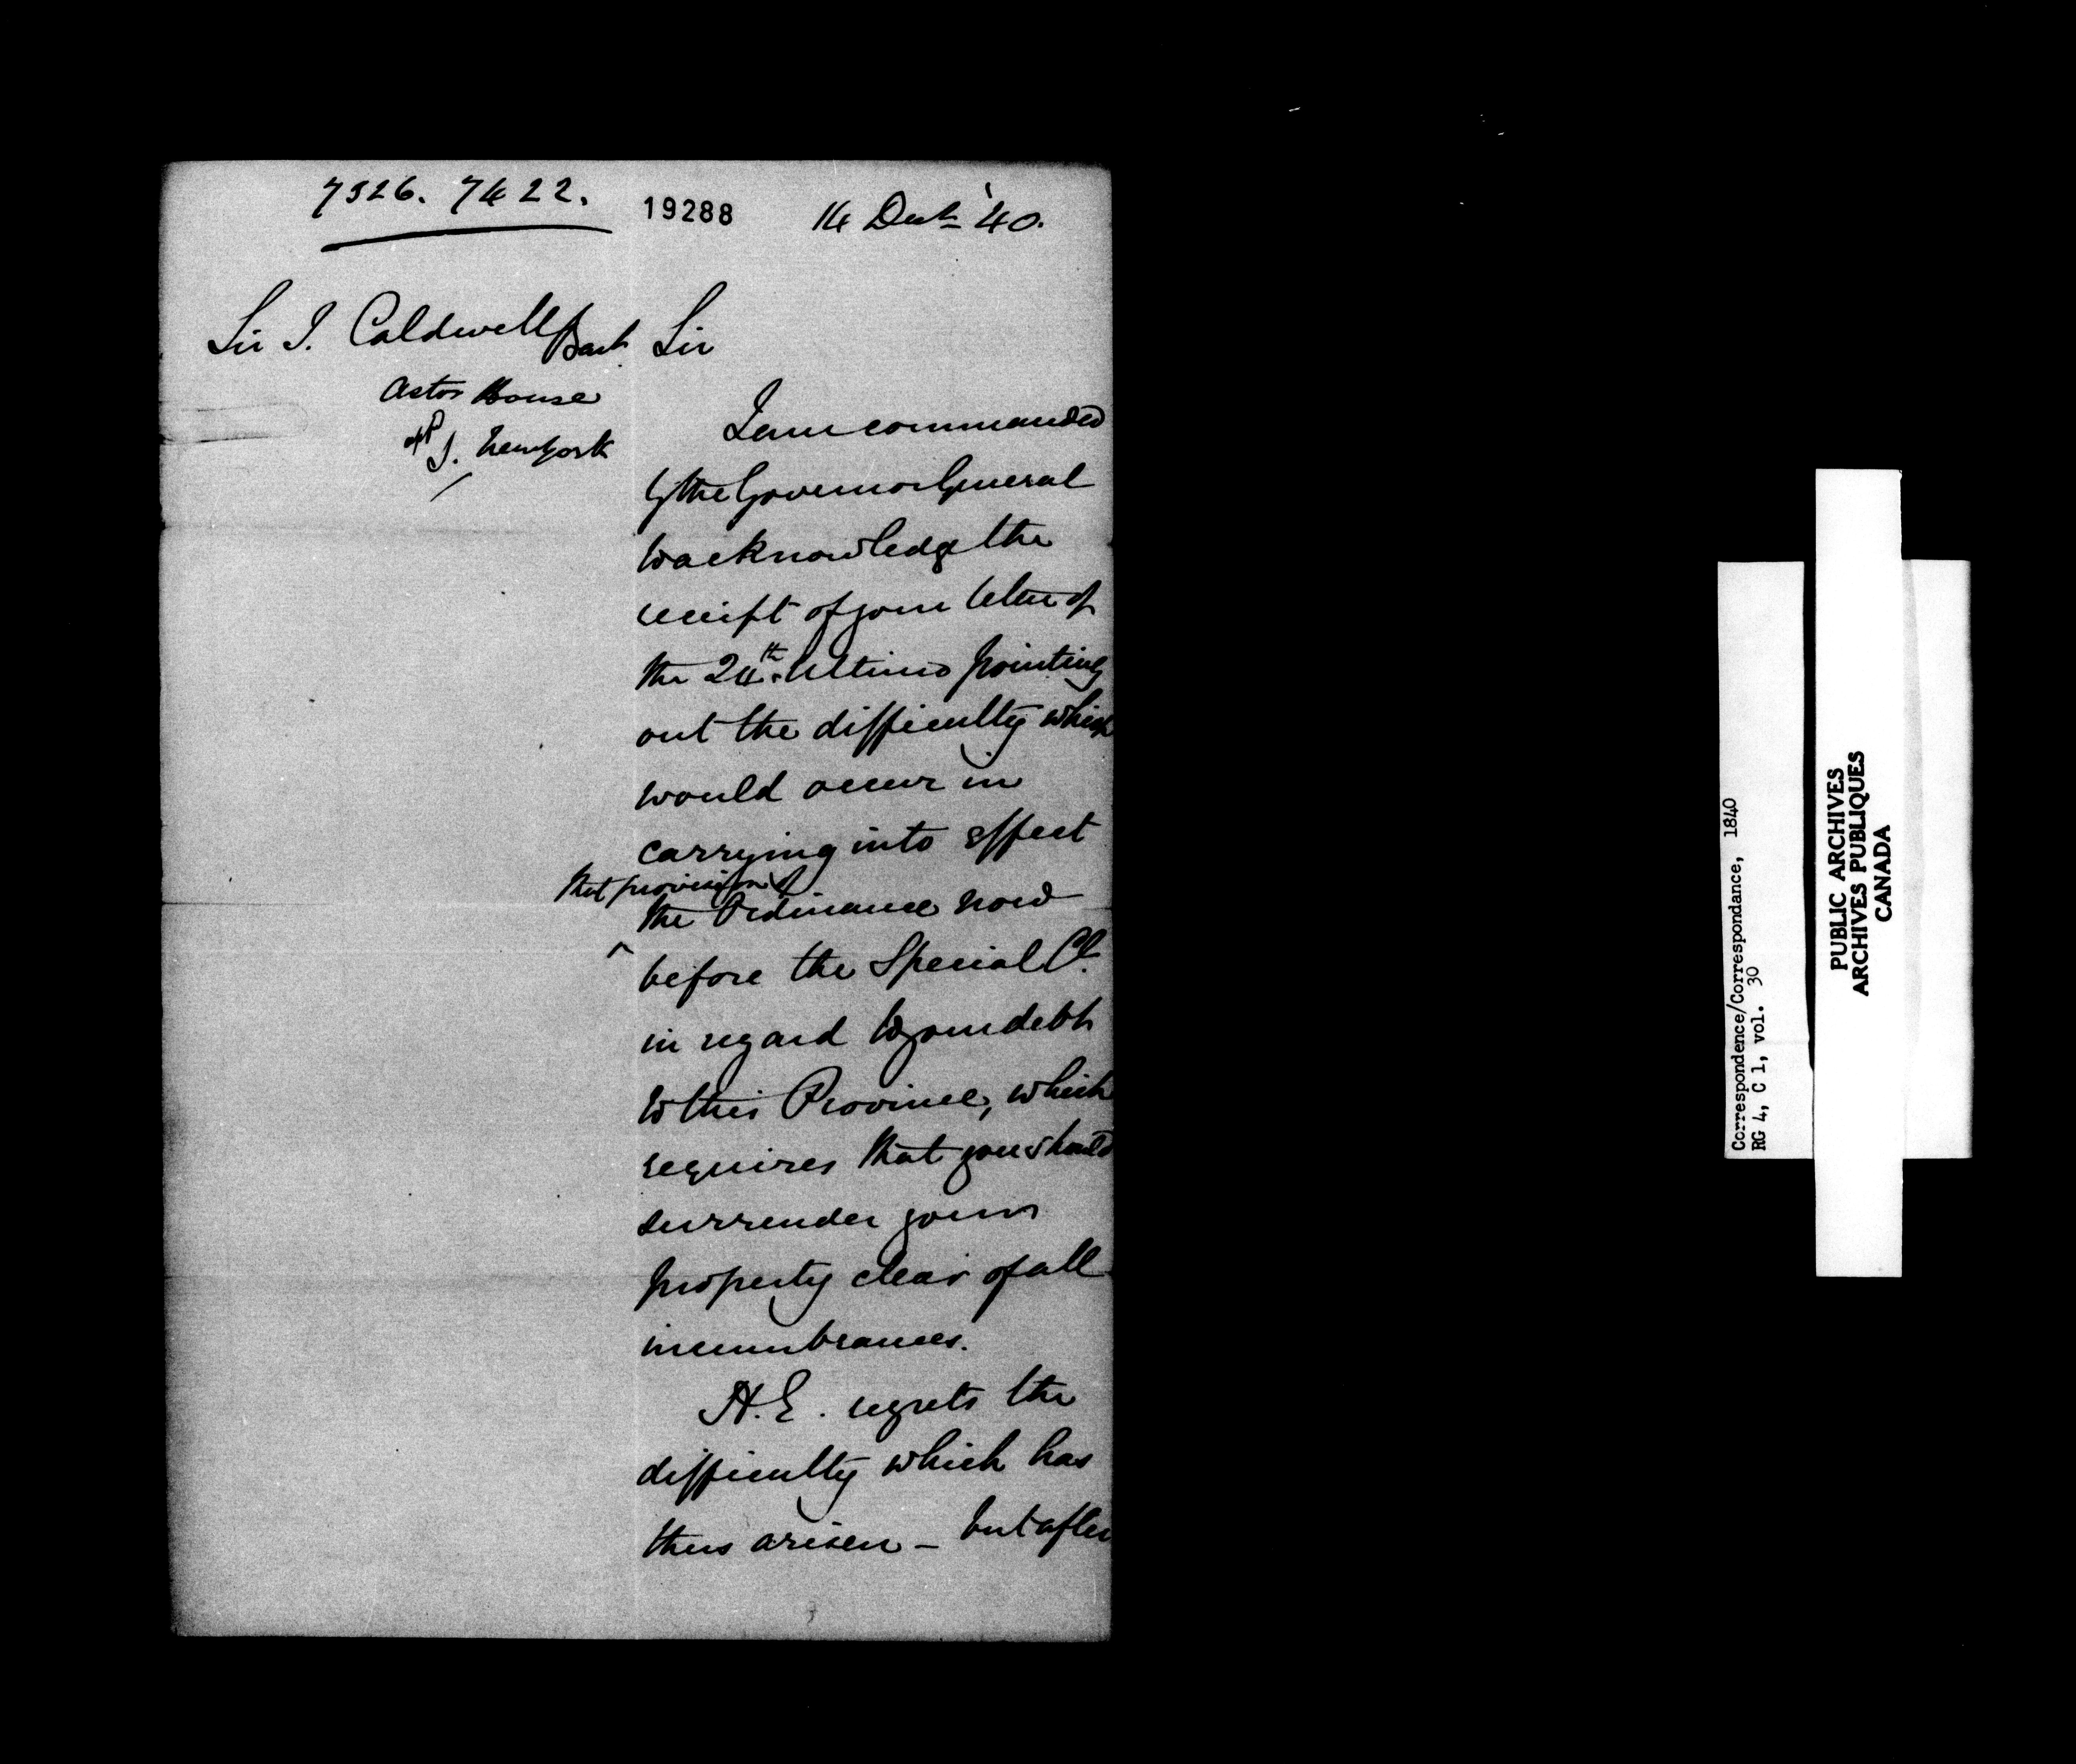 7326. 7422.
19288
14 Decr '40.
Sir J. Caldwell Bart
Astor House
New York
Sir
I am commanded
by the Governor General
to acknowledge the
receipt of your letter of
the 24th. Ultimo pointing
out the difficulty which
would occur in
carrying into effect
that provision of
the Ordinance now
before the Special Cl.
in regard to your debt
to this Province, which
requires that you should
surrender your
property clear of all
incumbrances.
H.E. regrets the
difficulty which has
thus arisen – but after
Correspondence/Correspondance, 1840
RG 4, C 1, vol. 30
PUBLIC ARCHIVES
ARCHIVES PUBLIQUES
CANADA